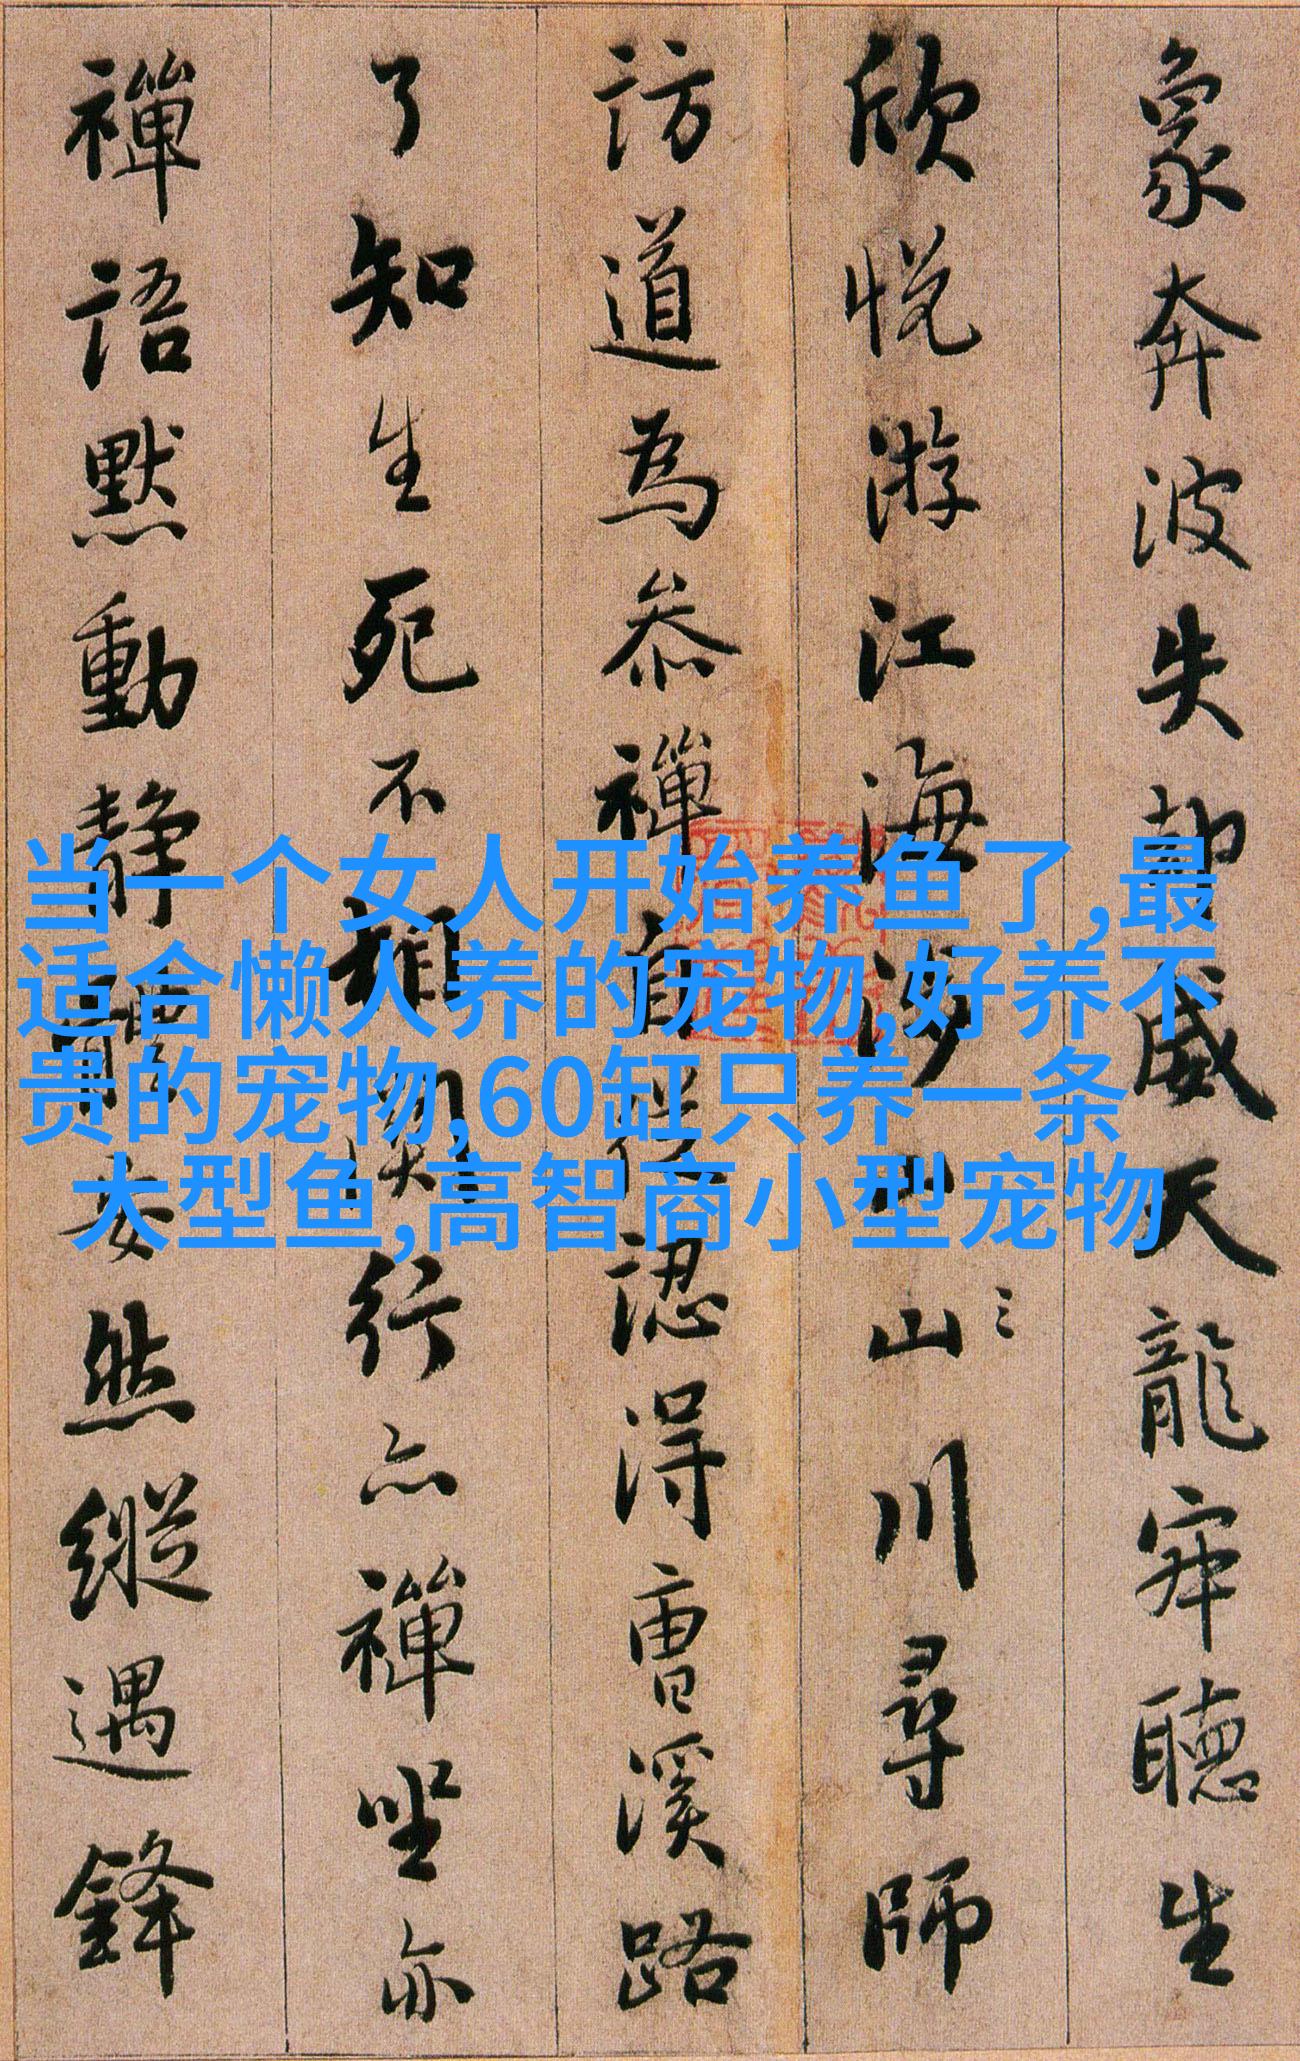 象奔波失却威天龍寂聽生
欣悅游江海涉山川尋師
訪道為叅禪自從認得曹溪路
了知生死不相関行亦禪坐亦
禪語默動靜體安然縱遇鋒
当一个女人开始养鱼了,最
适合懒人养的宠物,好养不
贵的宠物,60缸只养一条
大型鱼,高智商小型宠物